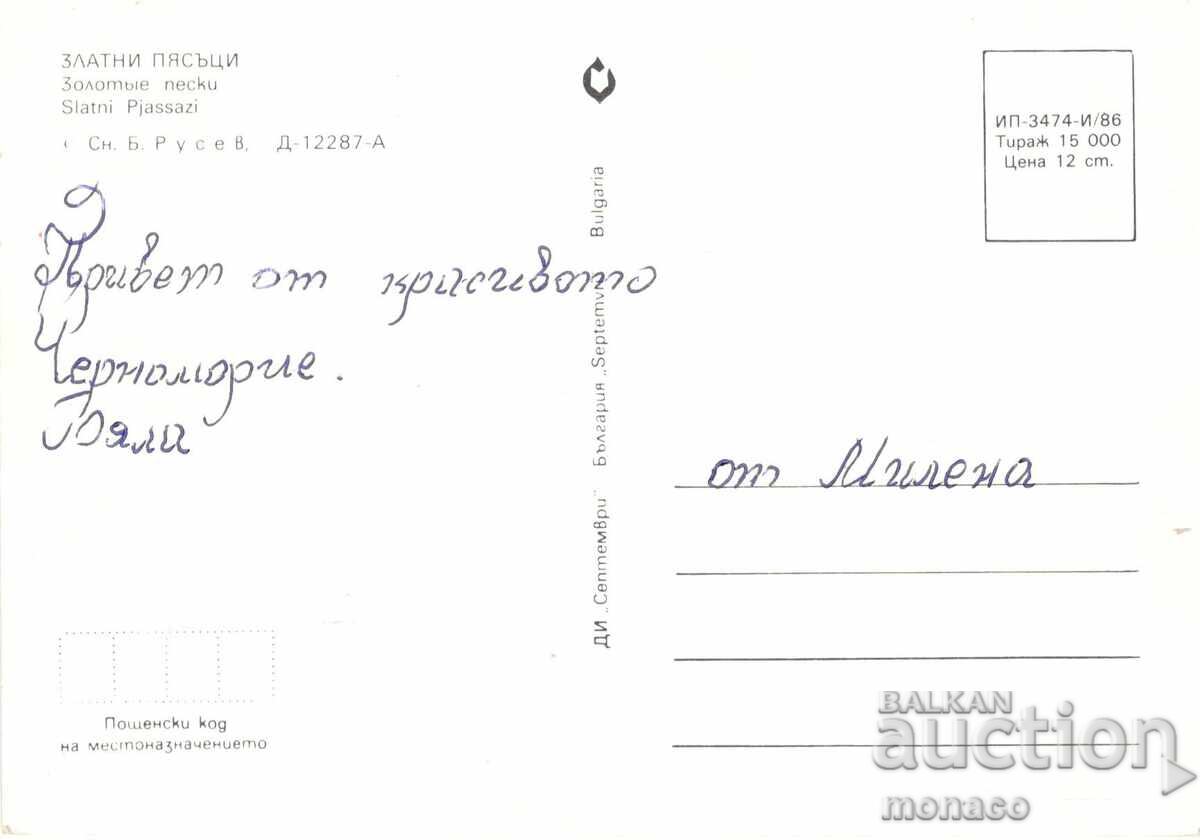 ЗЛАТНИ ПЯСЪЦИ
Золотые пески
Slatni Pjassazi
Сн. Б. Русев, Д-12287-А
Привет от красивото
Черноморие.
Вяли
ДИ „Септември" България „Septemvri" Bulgaria
ИП-3474-И/86
Тираж 15 000
Цена 12 ст.
от Милена
Пощенски код
на местоназначението
BALKAN
auction
monaco